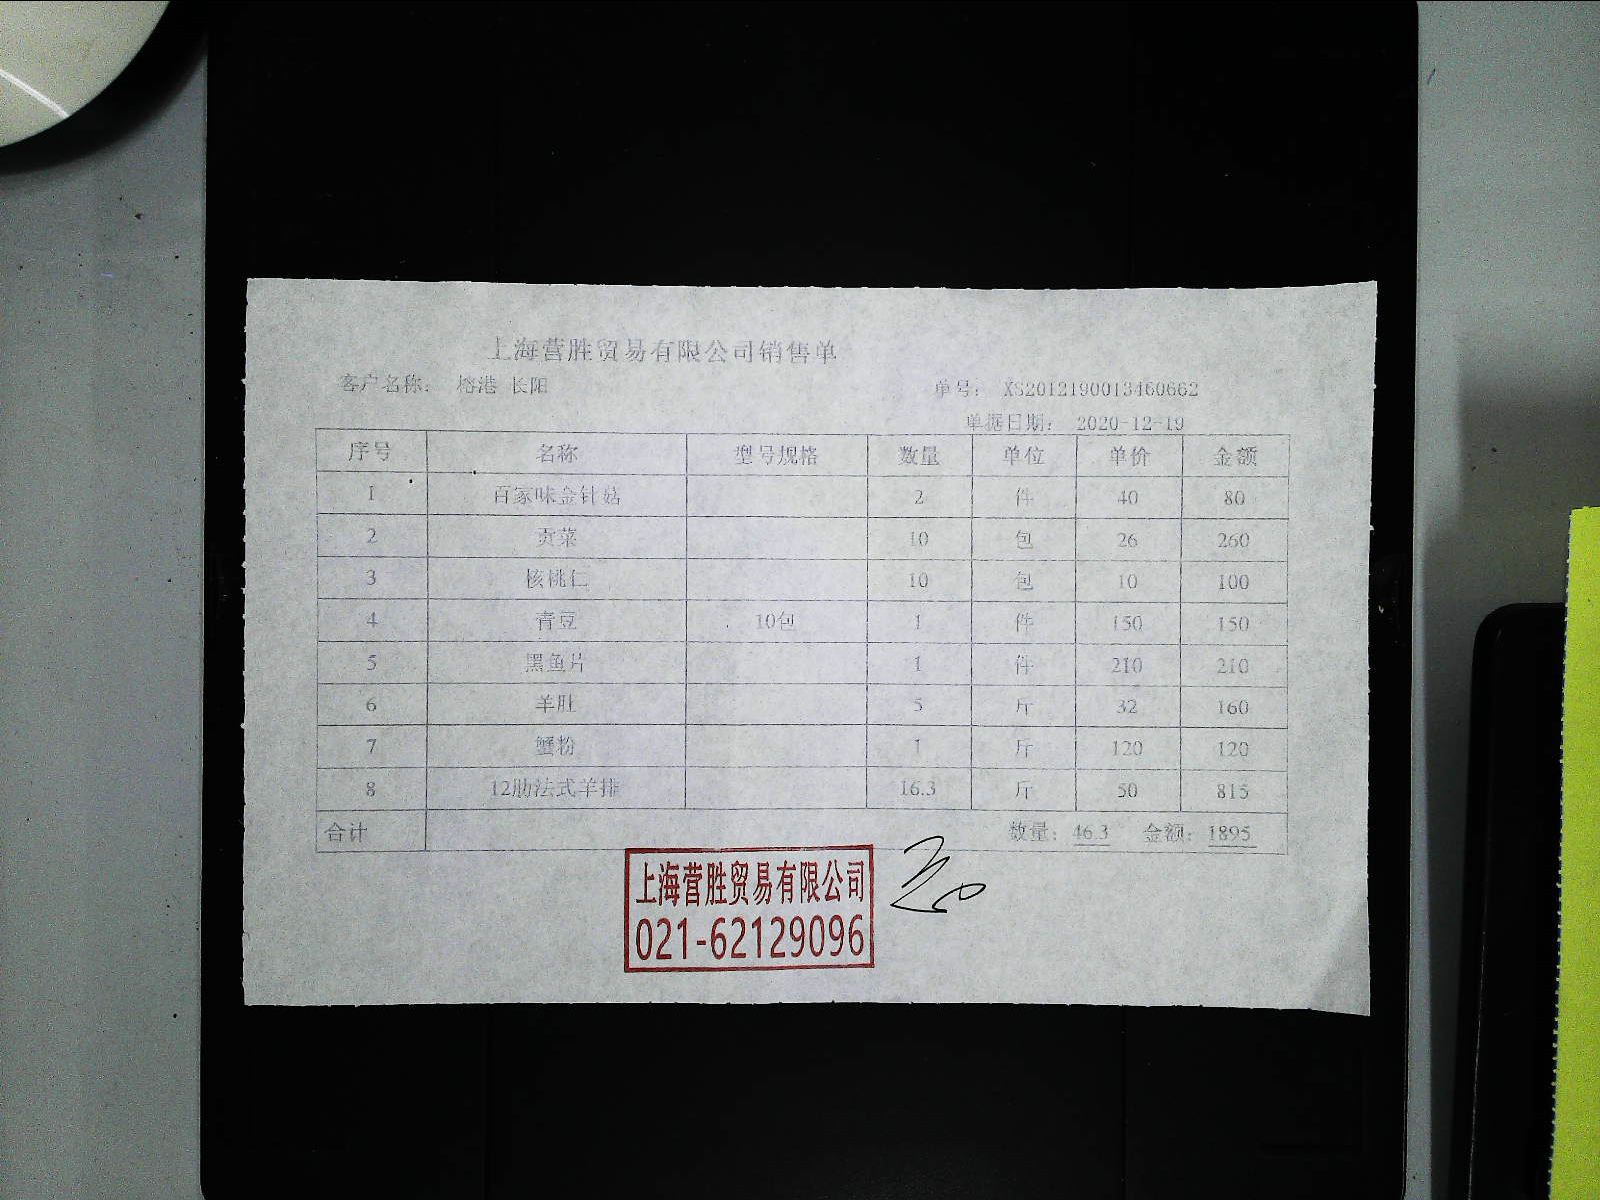 上海营胜贸易有限公司销售单
客户名称： 榕港 长阳 单号： XS2012190013460662
单据日期： 2020-12-19
序号 名称 型号规格 数量 单位 单价 金额
1 百家味金针菇 2 件 40 80
2 贡菜 10 包 26 260
3 核桃仁 10 包 10 100
4 青豆 10包 1 件 150 150
5 黑鱼片 1 件 210 210
6 羊肚 5 斤 32 160
7 蟹粉 1 斤 120 120
8 12肋法式羊排 16.3 斤 50 815
合计 数量：46.3 金额：1895
上海营胜贸易有限公司
021-62129096